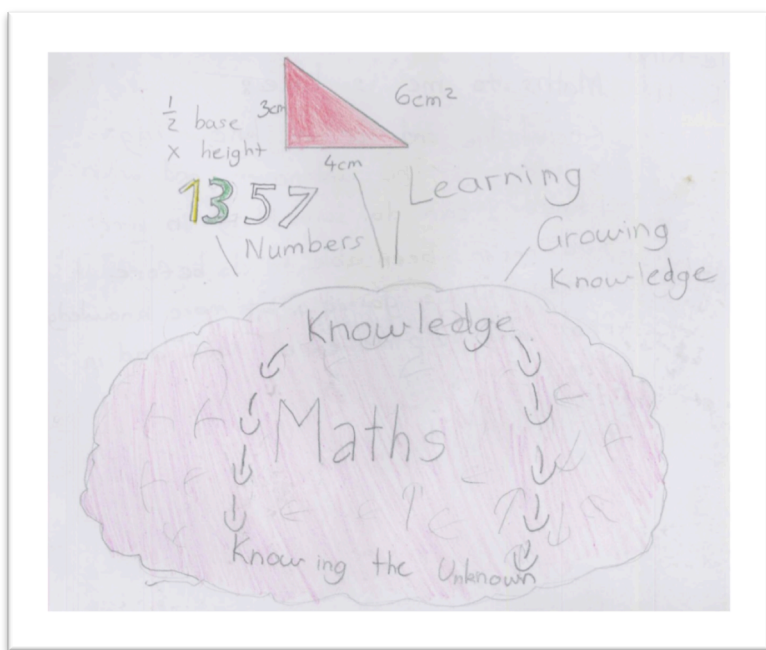 1/2 base
x height
3cm
6cm²
4cm
1357
Numbers
Learning
Growing
Knowledge
Knowledge
Maths
Knowing the Unknown